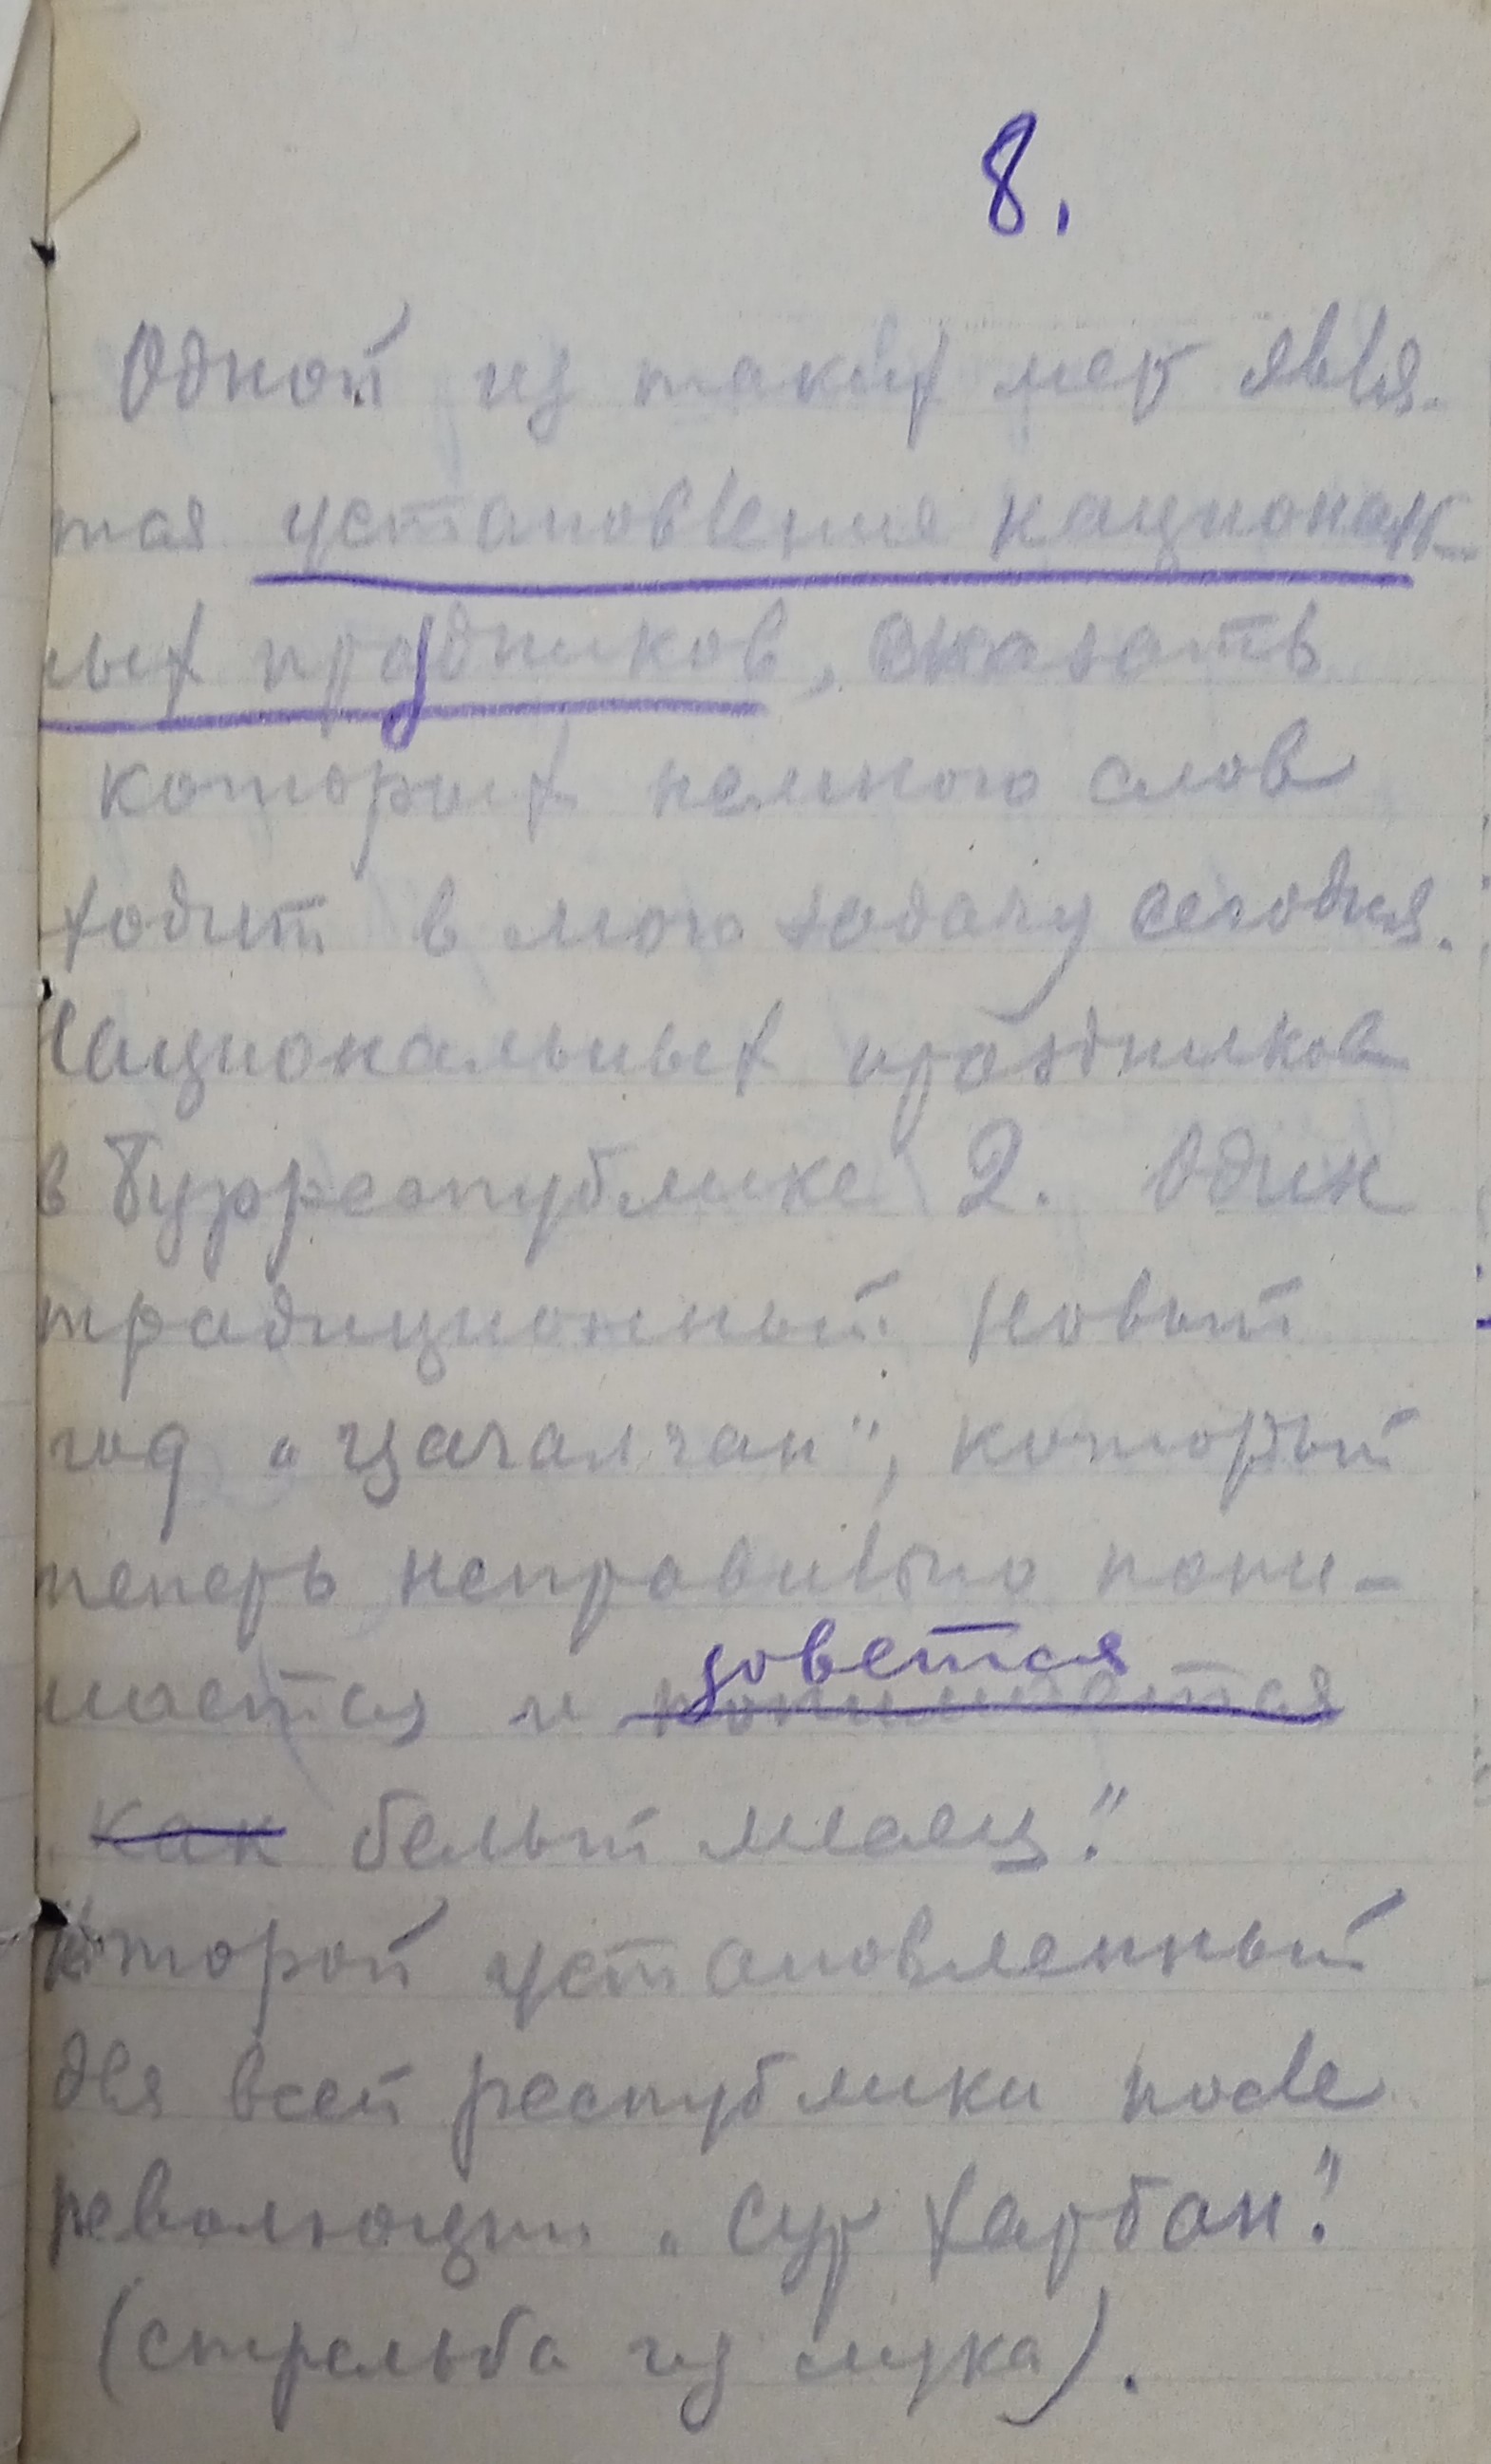 8.
Одной из таких мер явля-
тся установление националь-
ных праздников, сказать
которых немного слов
ходит в мою задачу сегодня.
Национальных праздников
в Бурреспублике 2. Один
традиционный новый
год „Цагалган", который
теперь неправильно пони-
мается и зовется понимается
как белый месяц".
Второй установленный
для всей республики после
революции „Сур Харбан".
(стрельба из лука).